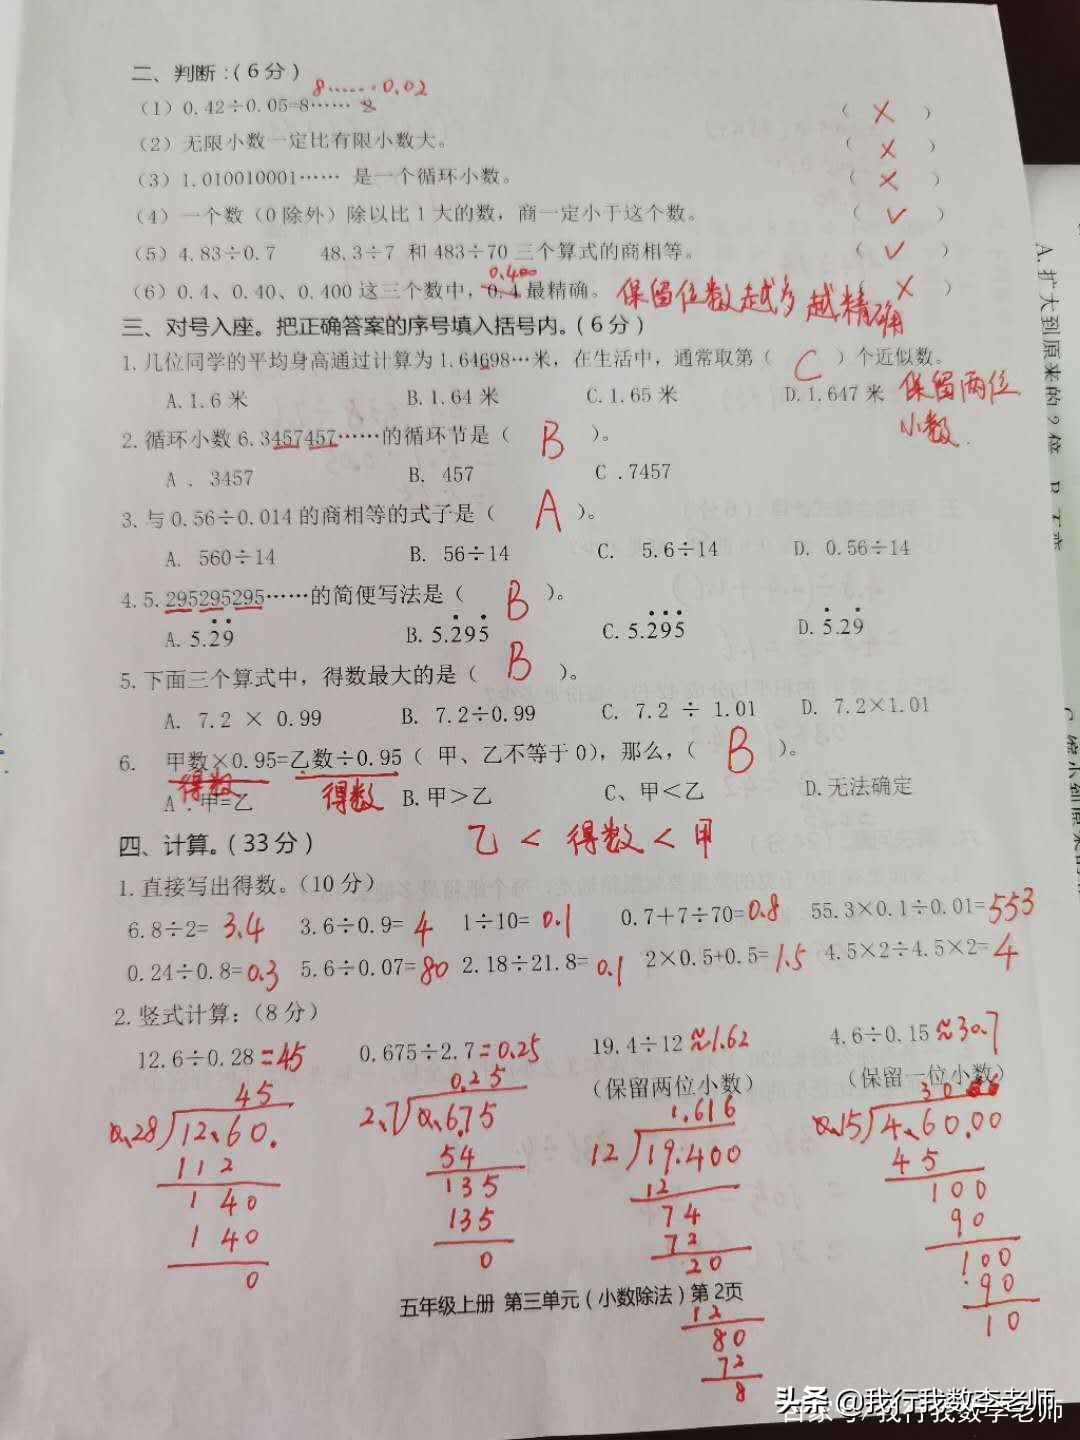 二、判断:(6分)
8……0.02
(1) 0.42÷0.05=8…… 2 ( × )
(2) 无限小数一定比有限小数大。 ( × )
(3) 1.010010001…… 是一个循环小数。 ( × )
(4) 一个数(0除外)除以比1大的数，商一定小于这个数。 ( ✓ )
(5) 4.83÷0.7 48.3÷7 和 483÷70 三个算式的商相等。 ( ✓ )
0.400
(6) 0.4、0.40、0.400 这三个数中，0.4 最精确。 保留位数越多越精确 ( × )
三、对号入座。把正确答案的序号填入括号内。(6分)
1. 几位同学的平均身高通过计算为 1.64698…米，在生活中，通常取第( C )个近似数。
A.1.6 米 B.1.64 米 C.1.65 米 D.1.647 米 保留两位
小数.
2. 循环小数 6.3457457……的循环节是( B )。
A . 3457 B. 457 C .7457
3. 与 0.56÷0.014 的商相等的式子是( A )。
A. 560÷14 B. 56÷14 C. 5.6÷14 D. 0.56÷14
4. 5.295295295……的简便写法是( B )。
A. 5.2̇9̇ B. 5.2̇95̇ C. 5.2̇9̇5̇ D. 5̇.29̇
5. 下面三个算式中，得数最大的是( B )。
A. 7.2 × 0.99 B. 7.2÷0.99 C. 7.2 ÷ 1.01 D. 7.2×1.01
6. 甲数×0.95=乙数÷0.95( 甲、乙不等于0)，那么，( B )。
得数 得数
A .甲=乙 B.甲＞乙 C、甲＜乙 D.无法确定
乙 < 得数 < 甲
四、计算。(33分)
1. 直接写出得数。(10分)
6.8÷2= 3.4 3.6÷0.9= 4 1÷10= 0.1 0.7+7÷70=0.8 55.3×0.1÷0.01=553
0.24÷0.8=0.3 5.6÷0.07=80 2.18÷21.8= 0.1 2×0.5+0.5=1.5 4.5×2÷4.5×2=4
2. 竖式计算:(8分)
12.6÷0.28=45 0.675÷2.7=0.25 19.4÷12≈1.62 4.6÷0.15≈30.7
(保留两位小数) (保留一位小数)
45 0.25 1.616 30
0.28 12.60. 2.7 0.675 12 19.400 0.15 4.60.00
112 54 12 45
140 135 74 100
140 135 72 90
0 0 20 100
五年级上册 第三单元(小数除法)第2页
12 90
80 10
72
8
A.扩大到原来的2倍 B.
头条 @我行我数李老师
百家号/我行我数李老师